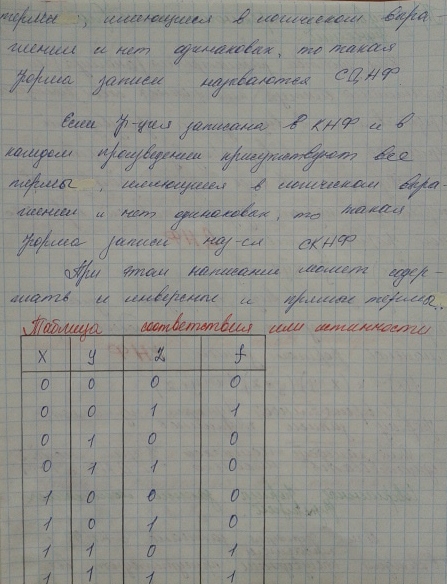 термы, имеющиеся в логическом выра-
жении и нет одинаковых, то такая
форма записи называются СДНФ
Если ф-ция записана в КНФ и в
каждом произведении присутствуют все
термы, имеющиеся в логическом выра-
жении и нет одинаковых, то такая
форма записи наз-ся СКНФ
При этом написании может содер-
жать и инверсные и прямые термы.
Таблица соответствия или истинности
X y Z f
0 0 0 0
0 0 1 1
0 1 0 0
0 1 1 0
1 0 0 0
1 0 1 0
1 1 0 1
1 1 1 1